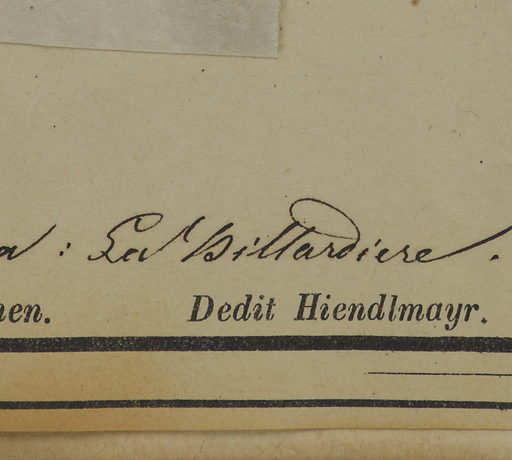 a : La Billardiere .
nen. Dedit Hiendlmayr.